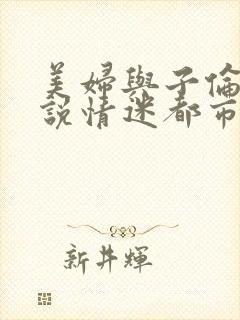 美婦與子倫
說情迷都市
新井輝